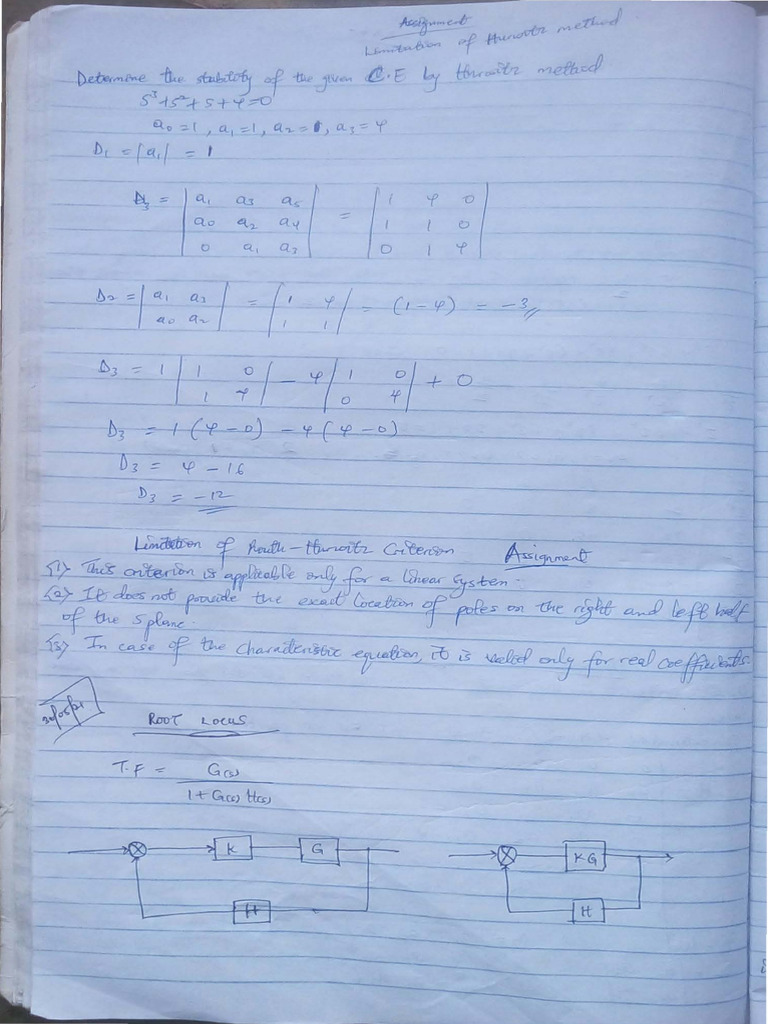 Assignment
Limitation of Hurwitz method
Determine the stability of the given C.E by Hurwitz method.
S³+S²+S+4=0
a0=1, a1=1, a2=1, a3=4
D1 = |a1| = 1
D3 = | a1 a3 a5 | = | 1 4 0 |
| a0 a2 a4 | | 1 1 0 |
| 0 a1 a3 | | 0 1 4 |
D2 = | a1 a3 | = | 1 4 | = (1-4) = -3
| a0 a2 | | 1 1 |
D3 = 1 | 1 0 | - 4 | 1 0 | + 0
| 1 4 | | 0 4 |
D3 = 1(4-0) -4(4-0)
D3 = 4 - 16
D3 = -12
Limitation of Routh-Hurwitz Criterion Assignment
(1) This criterion is applicable only for a linear system.
(2) It does not provide the exact location of poles on the right and left half
of the s plane.
(3) In case of the characteristic equation, it is valid only for real coefficients.
30/05/21
ROOT LOCUS
T.F = G(s)
1+G(s)H(s)
K G KG
H H